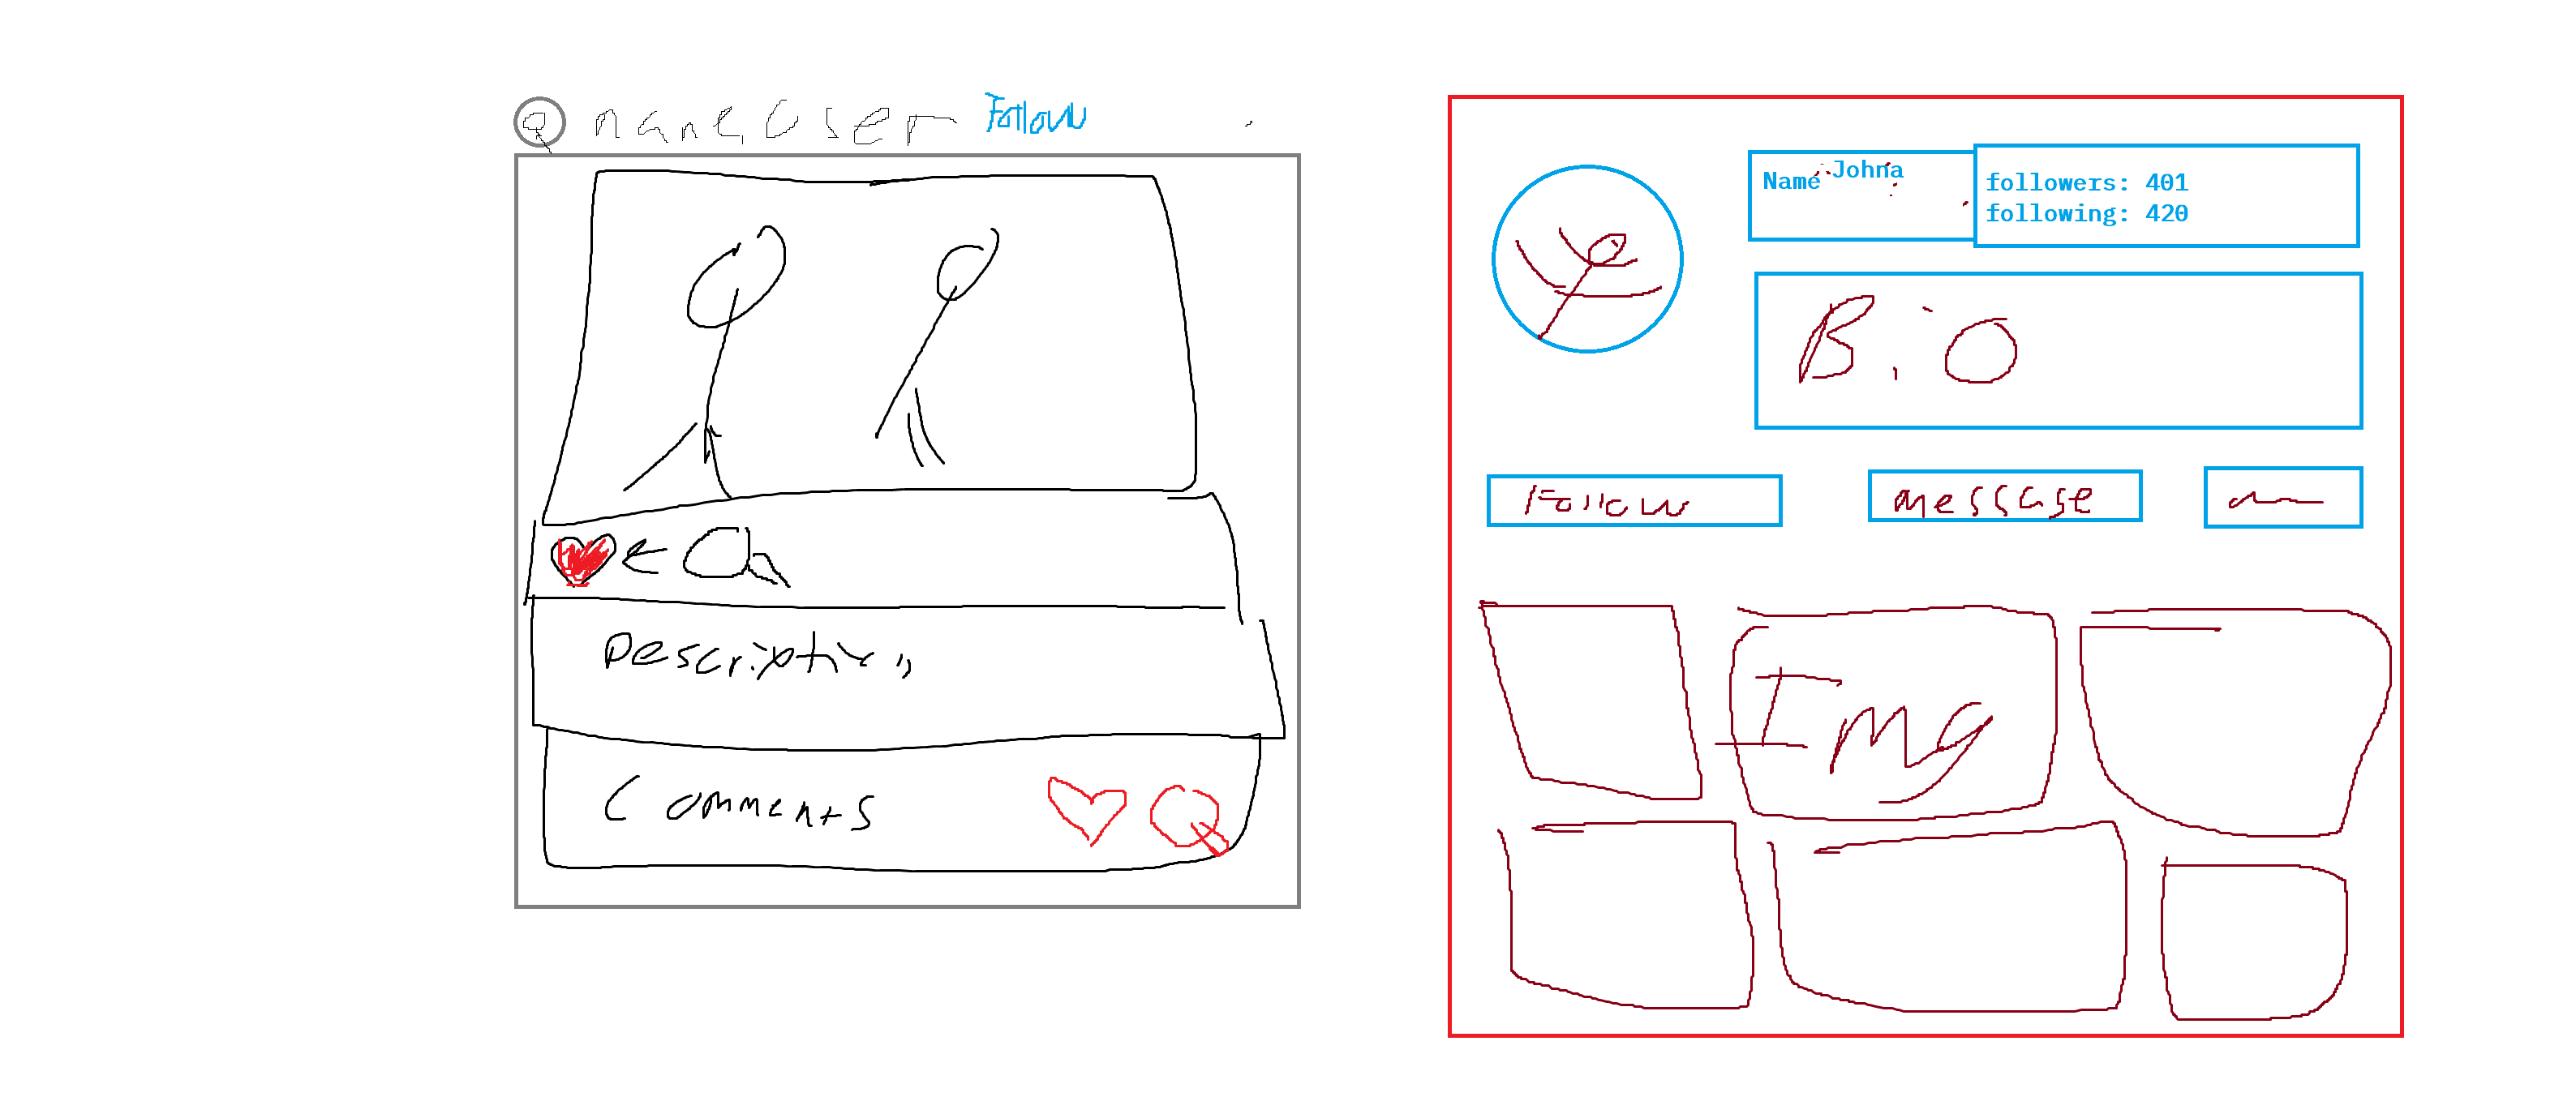 nameUser Follow
Descriptin
Comments
Name Johna
followers: 401
following: 420
Bio
Follow
messase
Img